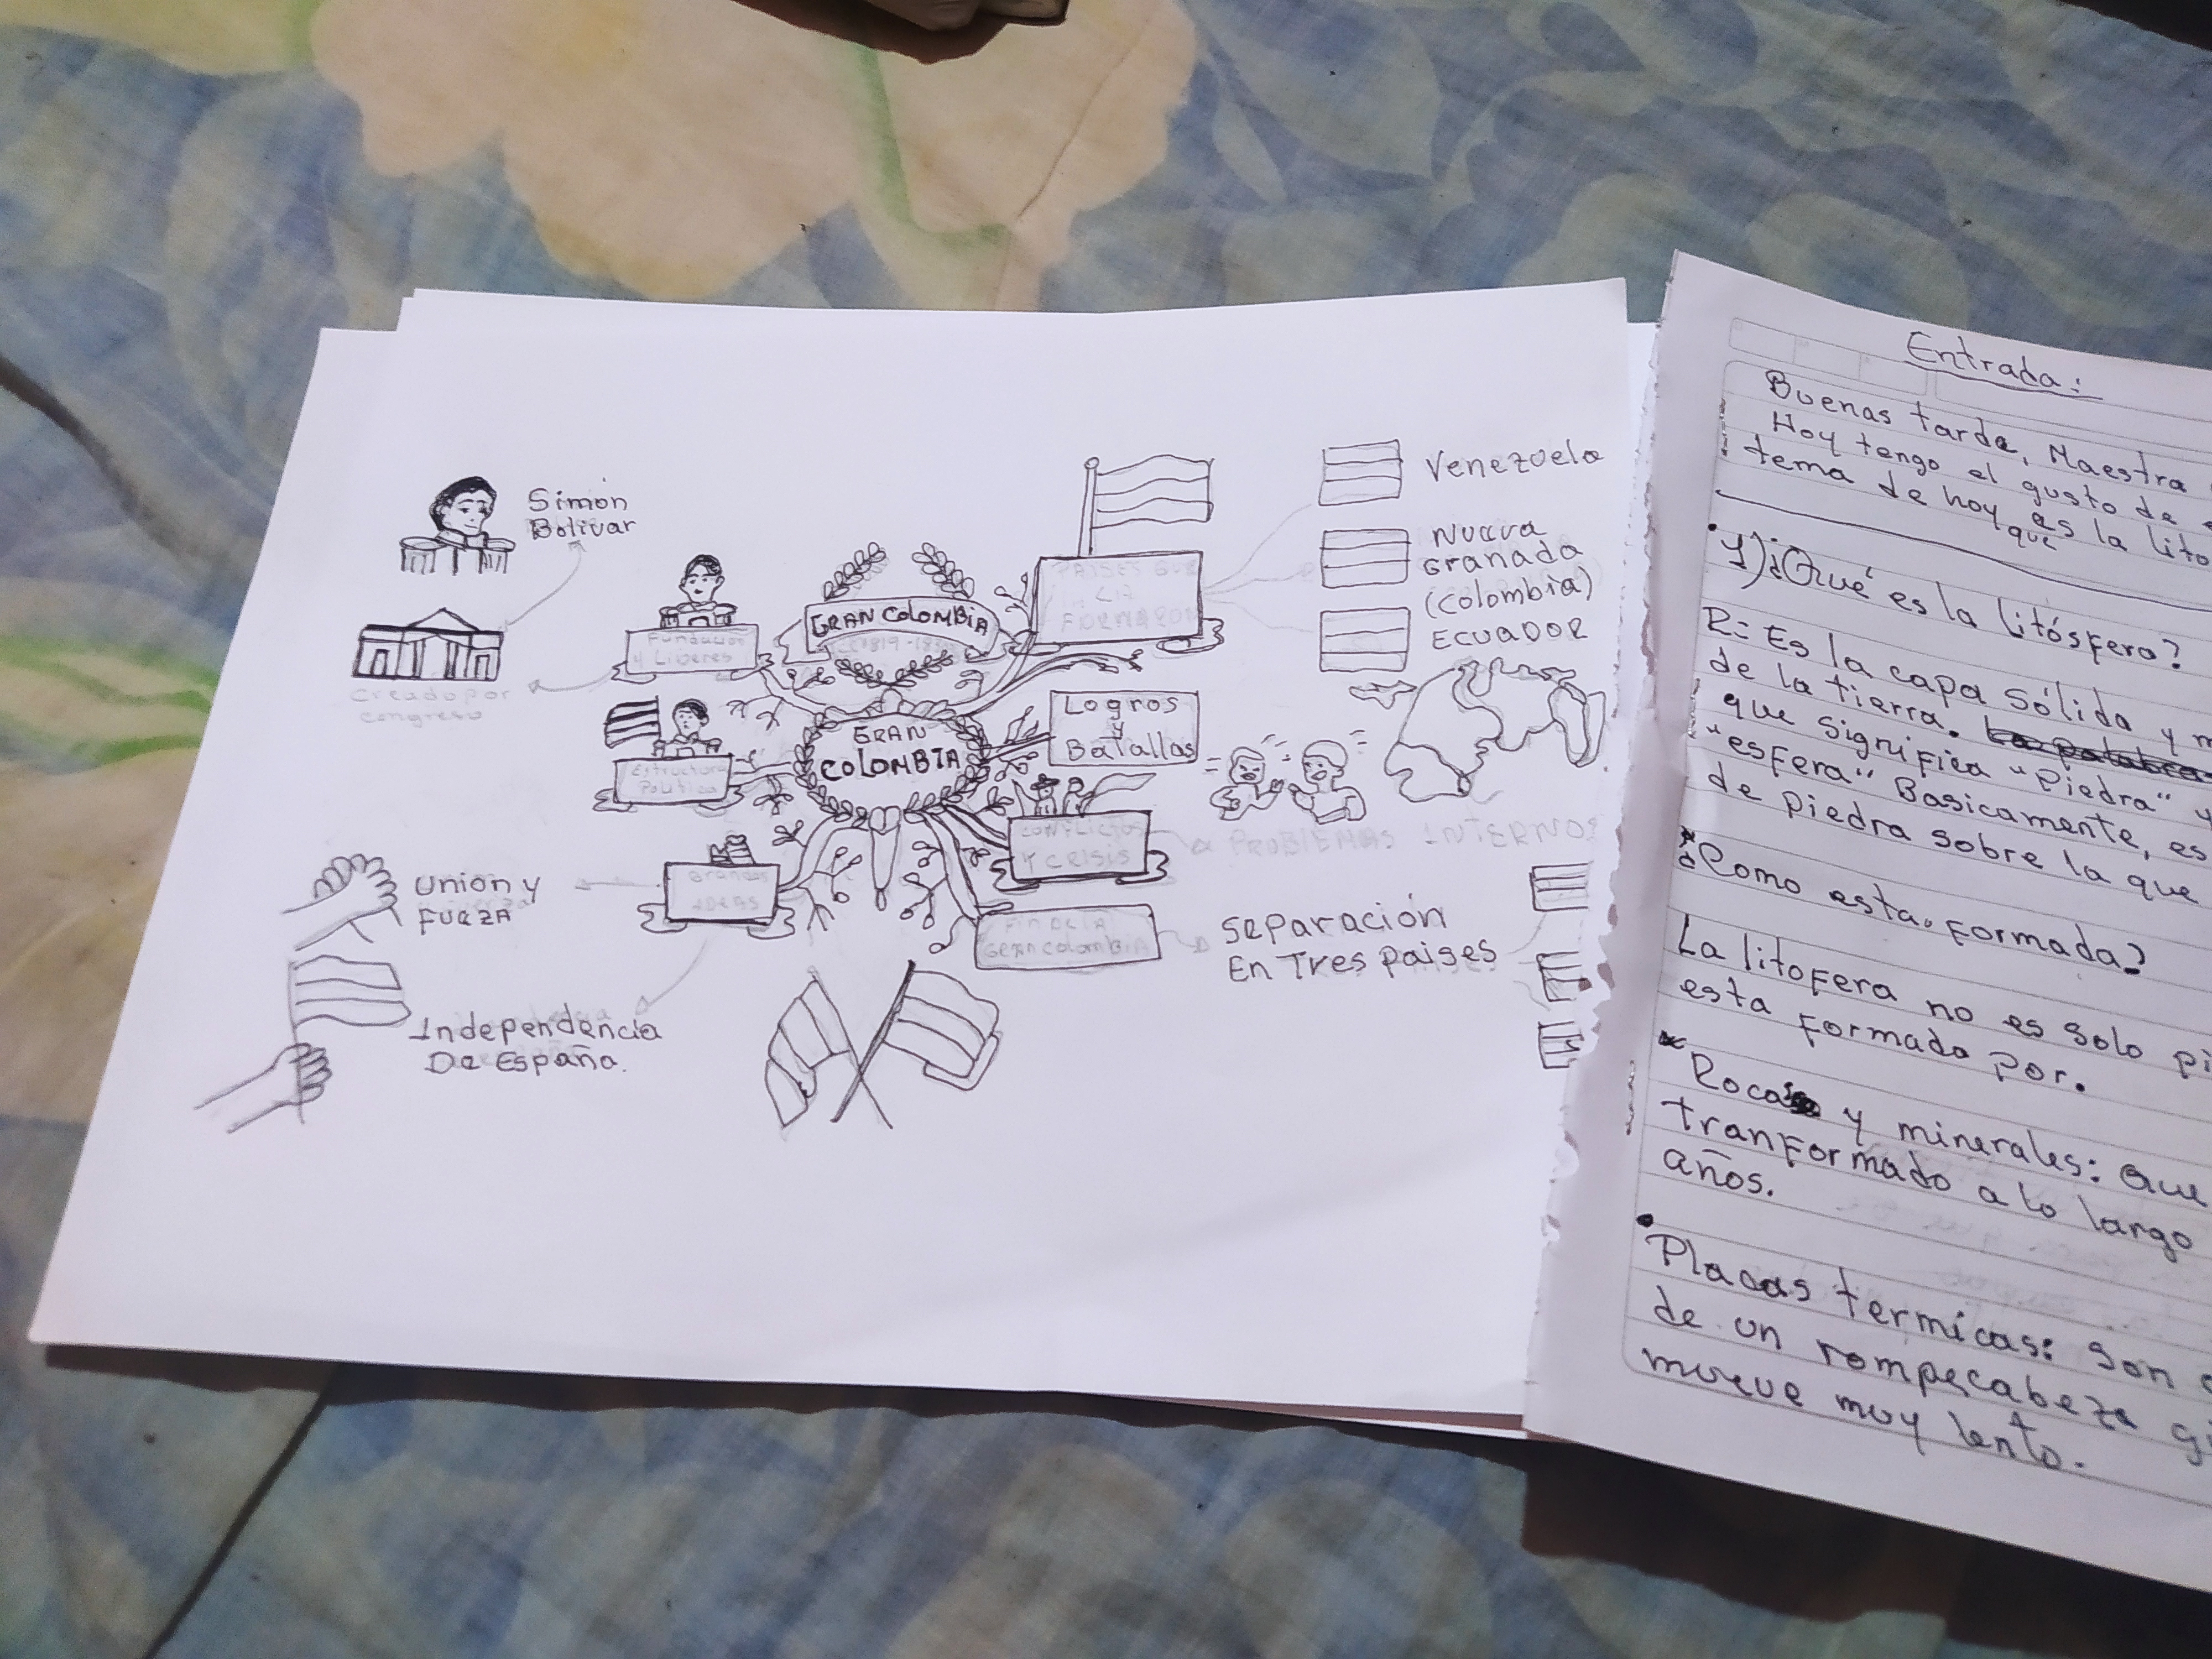 Simón
Bolivar
Creado por
congreso
Fundación
y Liberes
GRAN COLOMBIA
PAISES QUE
LA
FORMARON
Venezuela
Nueva
Granada
(colombia)
ECUADOR
Estructura
Politica
GRAN
COLOMBIA
Logros
y
Batallas
CONFLICTOS
Y CRISIS
PROBLEMAS INTERNOS
Grandes
IDEAS
Union y
FUEZA
Independencia
De España.
FIN DE LA
Gran colombia
Separación
En Tres paises
Entrada:
Buenas tarde, Maestra
Hoy tengo el gusto de
tema de hoy es la lito
que
1) ¿Qué es la litósfera?
R: Es la capa sólida y m
de la tierra. La palabra
que significa "Piedra" y
"esfera" Basicamente, es
de piedra sobre la que
¿Como esta. formada?
La litofera no es solo pi
esta formado por.
Rocas y minerales: que
tranformado a lo largo
años.
Placas termicas: Son
de un rompecabeza
mueve muy lento.